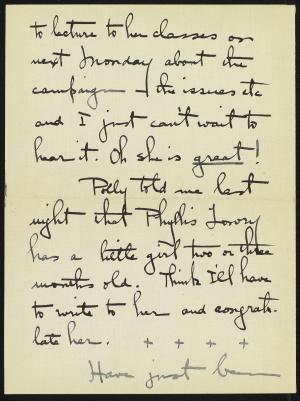 to lecture to her classes on
next Monday about the
campaign – the issues etc
and I just can't wait to
hear it. Oh she is great!
Polly told me last
night that Phyllis Lowry
has a little girl two or three
months old. Think I'll have
to write to her and congratu-
late her. + + + +
Have just been